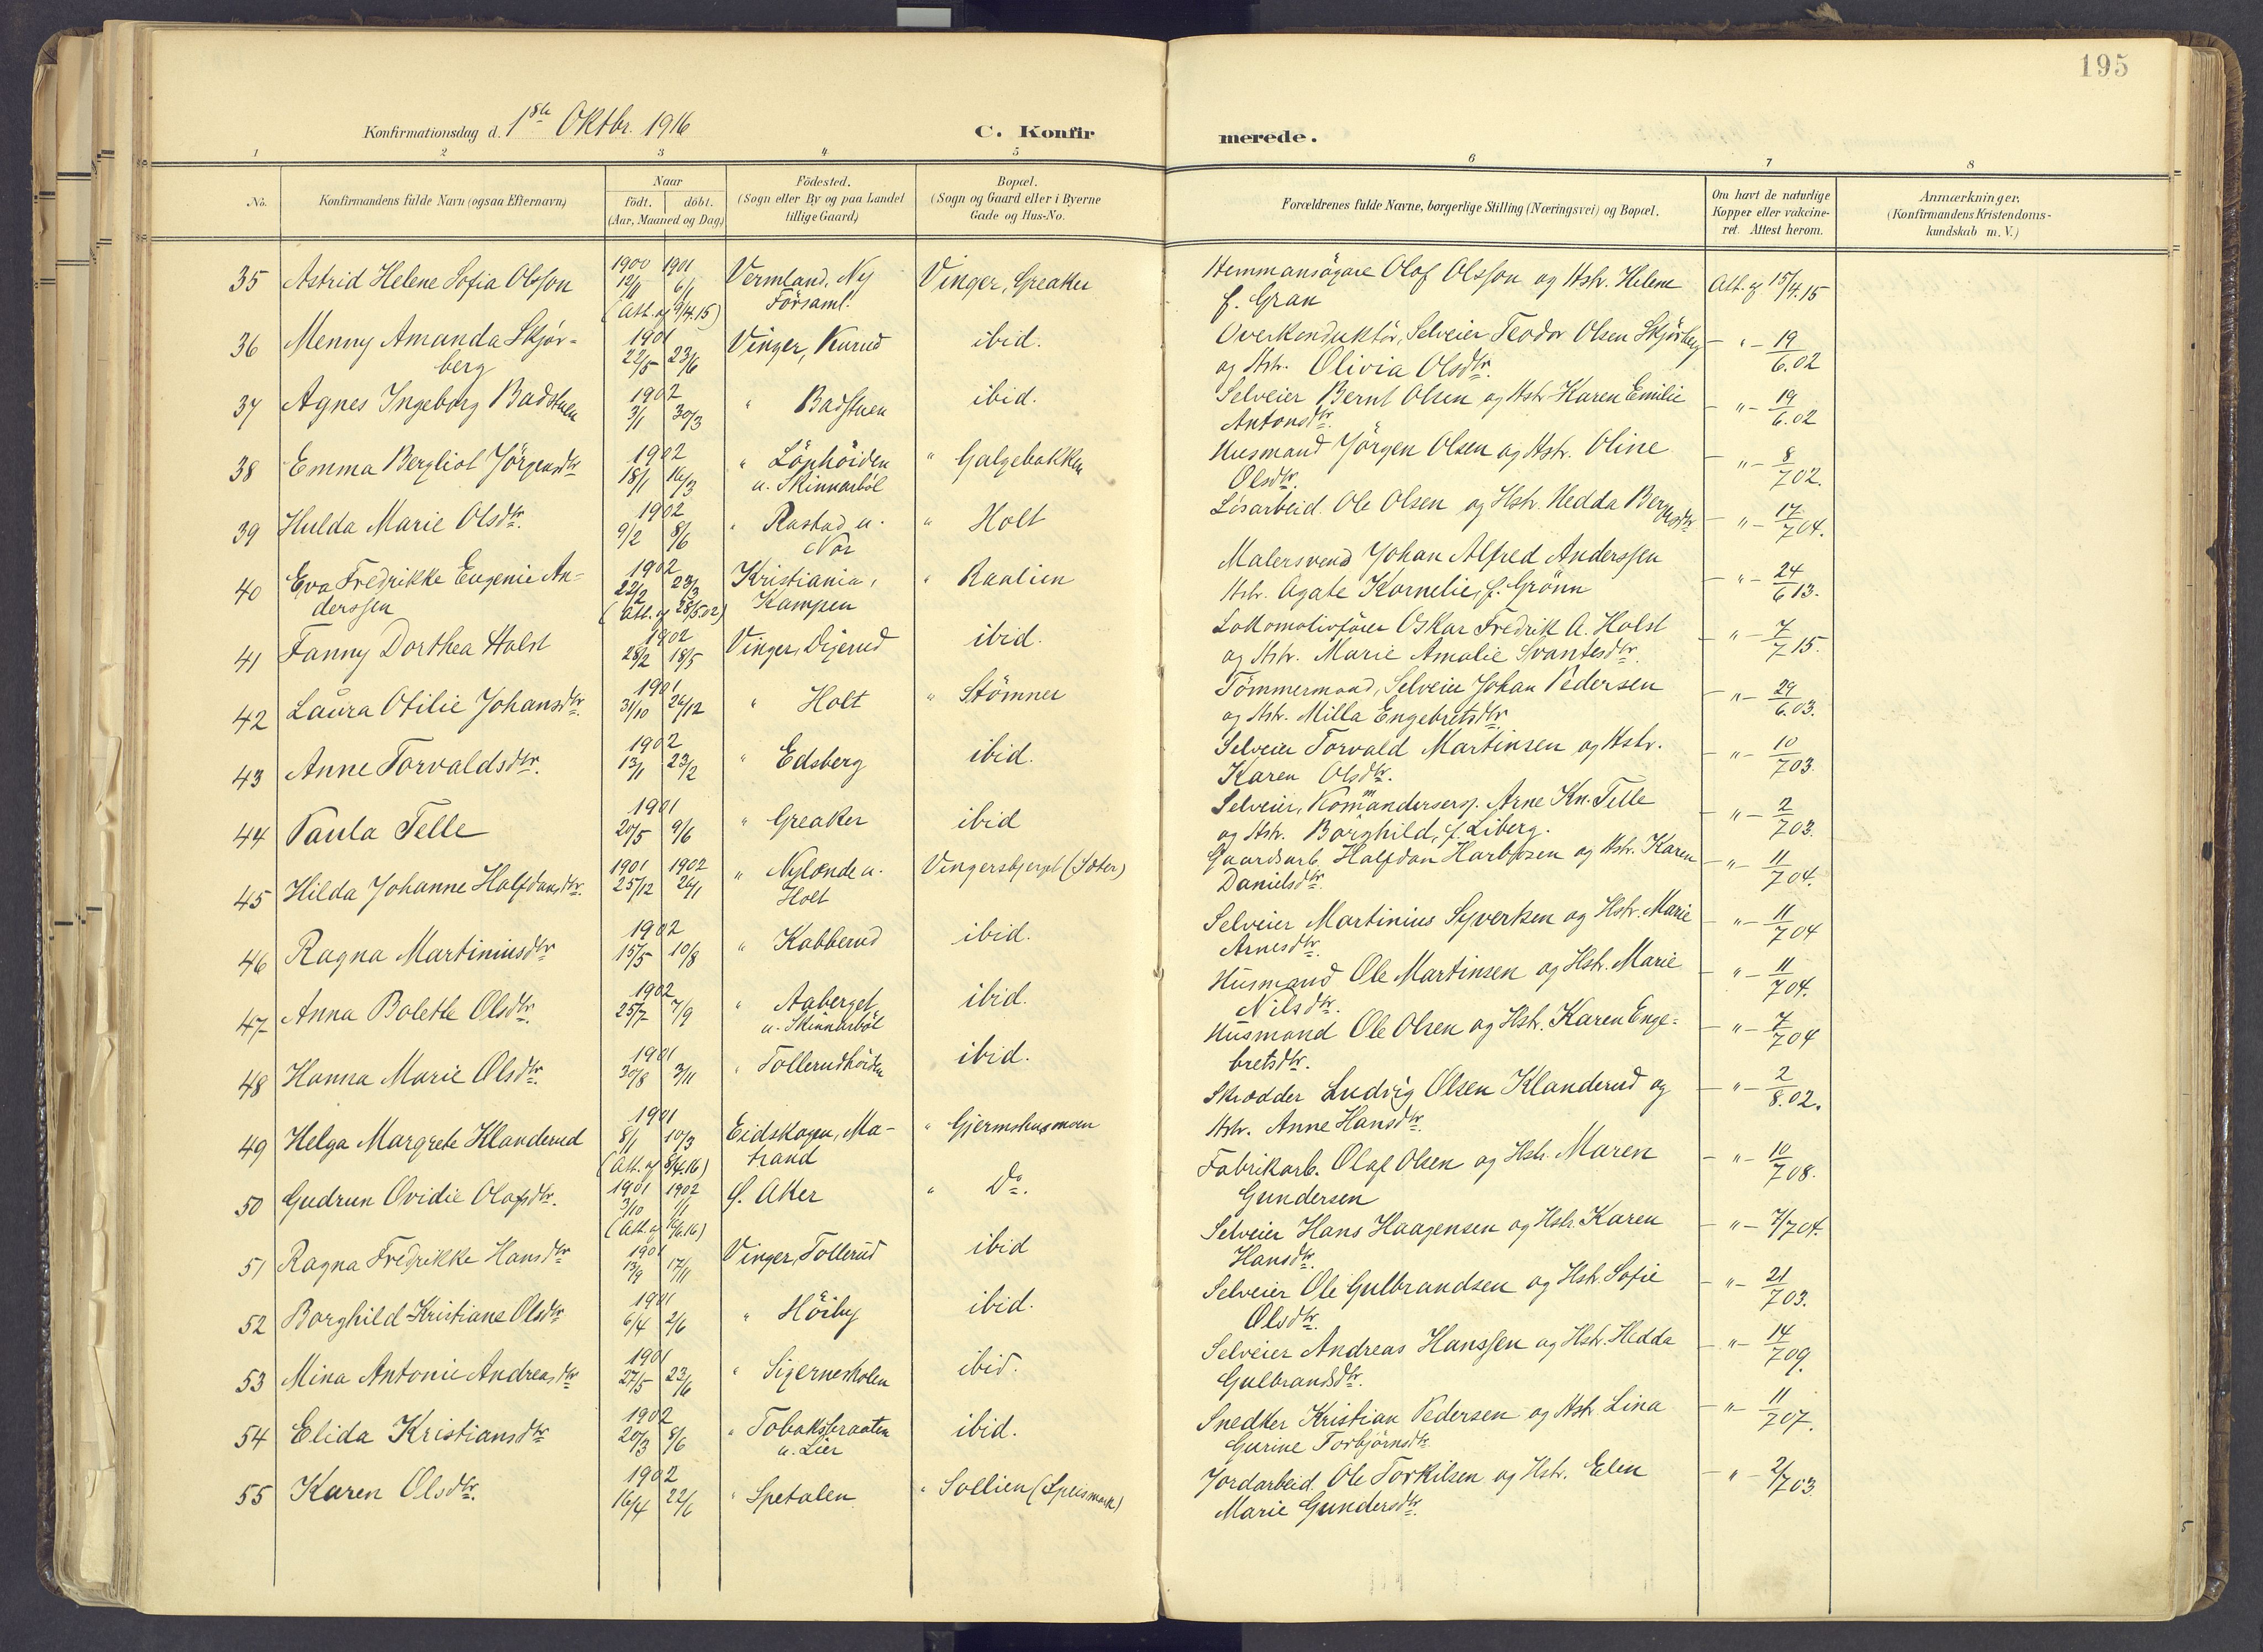 195
Konfirmationsdag d. 1ste Oktbr. 1916
C. Konfir
merede.
1 2 3 4 5 6 7 8
No.
Konfirmandens fulde Navn (ogsaa Efternavn)
Naar
födt. döbt.
(Aar, Maaned og Dag)
Födested.
(Sogn eller By og paa Landet
tillige Gaard)
Bopæl.
(Sogn og Gaard eller i Byerne
Gade og Hus-No.
Forældrenes fulde Navne, borgerlige Stilling (Næringsvei) og Bopæl.
Om havt de naturlige
Kopper eller vakcine-
ret. Attest herom.
Anmærkninger.
(Konfirmandens Kristendoms-
kundskab m. V.)
35 Astrid Helene Sofia Olsson 1900 12/11 1901 6/1 Vermland, Ny Vinger, Greaker Hemmansägare Olof Olsson og Hstr. Helene Att. af 15/4.15
(Att. af 9/4.15) Församl. f. Gran
36 Menny Amanda Skjör- 1901 22/5 23/6 Vinger, Kurud ibid. Overkonduktör, Selveier Teodor Olsen Skjörberg - " - 19/6.02
berg og Hstr. Olivia Olsdtr.
37 Agnes Ingeborg Badstuen 1902 3/1 30/3 " Badstuen ibid. Selveier Bernt Olsen og Hstr Karen Emilie - " - 19/6.02
Antonsdtr.
38 Emma Bergliot Jörgensdtr 1902 18/1 16/3 " Lönhöiden " Galgebakken Husmand Jörgen Olsen og Hstr. Oline - " - 8/7 02.
u. Skinnarböl Olsdtr.
39 Hulda Marie Olsdtr. 1902 9/2 8/6 " Rastad u. " Holt Lösarbeid. Ole Olsen og Hstr. Hedda Berg Olsdtr - " - 17/7 04.
Nor
40 Eva Fredrikke Eugenie An- 1902 22/2 23/3 Kristiania, " Raalien Malersvend Johan Alfred Anderssen - " - 24/6 13.
derssen (Att. af 28/5.02) Kampen Hstr. Agate Kornelie, f. Grönn
41 Fanny Dorthea Holst 1902 28/2 18/5 Vinger, Digerud ibid. Lokomotivförer Oskar Fredrik A. Holst - " - 7/7 15.
og Hstr. Marie Amalie Svantesdtr.
42 Laura Otilie Johansdtr. 1901 31/10 26/12 " Holt " Stömner Tömmermand, Selveier Johan Pedersen - " - 29/6.03.
og Hstr. Milla Engebretsdtr.
43 Anne Torvaldsdtr. 1902 13/1 23/2 " Edsberg ibid. Selveier Torvald Martinsen og Hstr. - " - 10/7 03.
Karen Olsdtr.
44 Paula Telle 1901 20/5 9/6 " Greaker ibid Selveier, Kommandersersj. Arne Kn. Telle - " - 2/7 03.
og Hstr. Borghild, f. Liberg.
45 Hilda Johanne Halfdansdtr. 1901 25/12 1902 26/1 " Nylænde u. Vingersbjerget (Sæter) Gaardsarb. Halfdan Harbosen og Hstr. Karen - " - 11/7 04.
Holt Danielsdtr.
46 Ragna Martiniusdtr 1902 15/5 10/8 " Kabberud ibid. Selveier Martinius Syvertsen og Hstr. Marie - " - 11/7 04
Arnesdtr.
47 Anna Bolette Olsdtr. 1902 25/7 7/9 " Aaberget ibid. Husmand Ole Martinsen og Hstr. Marie - " - 11/7 04.
u. Skinnarböl Nilsdtr.
48 Hanna Marie Olsdtr. 1901 30/8 3/11 " Tollerudhöiden ibid. Husmand Ole Olsen og Hstr. Karen Enge- - " - 7/7 04
bretsdtr.
49 Helga Margrete Klanderud 1901 8/1 10/3 Eidskogen, Ma- " Gjermshusmoen Skrædder Ludvig Olsen Klanderud og - " - 2/8.02.
(Att. af 8/4.16) trand Hstr. Anne Hansdtr.
50 Gudrun Ovidie Olafsdtr. 1901 3/10 1902 1/1 Ö. Aker " Do. Fabrikarb. Olaf Olsen og Hstr. Maren - " - 10/7 08.
Gundersen
51 Ragna Fredrikke Hansdtr 1901 13/9 17/11 Vinger, Tollerud ibid Selveier Hans Haagensen og Hstr. Karen - " - 7/7 04.
Hansdtr.
52 Borghild Kristiane Olsdtr 1901 6/4 2/6 " Hörby ibid. Selveier Ole Gulbrandsen og Hstr. Sofie - " - 21/7 03.
Olsdtr.
53 Mina Antonie Andreasdtr 1901 27/5 23/6 " Sigerneskolen ibid. Selveier Andreas Hanssen og Hstr. Hedda - " - 14/7 09.
Gulbrandsdtr.
54 Elida Kristiansdtr 1902 20/3 8/6 " Tobaksbraaten ibid. Snedker Kristian Pedersen og Hstr Lina - " - 11/7 07.
u. Lier Gurine Torbjörnsdtr
55 Karen Olsdtr. 1902 16/4 22/6 " Spetalen " Sollien (Speismark) Jordarbeid. Ole Torkilsen og Hstr. Elen - " - 2/7 03
Marie Gundersdtr.